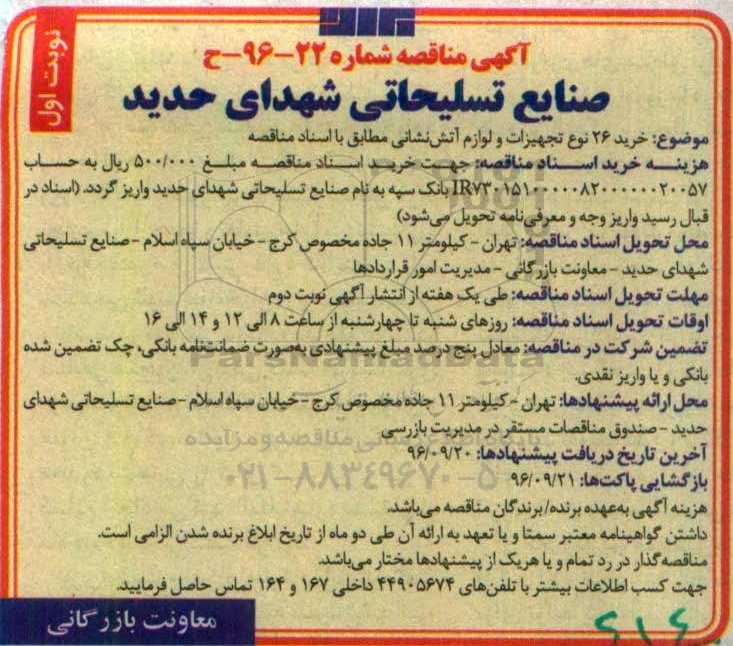 نوبت اول
آگهی مناقصه شماره ۲۲-۹۶-ح
صنایع تسلیحاتی شهدای حدید
موضوع: خرید ۲۶ نوع تجهیزات و لوازم آتش‌نشانی مطابق با اسناد مناقصه
هزینه خرید اسناد مناقصه: جهت خرید اسناد مناقصه مبلغ ۵۰۰/۰۰۰ ریال به حساب
IR۷۳۰۱۵۱۰۰۰۰۰۸۲۰۰۰۰۰۰۲۰۰۵۷ بانک سپه به نام صنایع تسلیحاتی شهدای حدید واریز گردد. (اسناد در
قبال رسید واریز وجه و معرفی‌نامه تحویل می‌شود)
محل تحویل اسناد مناقصه: تهران - کیلومتر ۱۱ جاده مخصوص کرج - خیابان سپاه اسلام - صنایع تسلیحاتی
شهدای حدید - معاونت بازرگانی - مدیریت امور قراردادها
مهلت تحویل اسناد مناقصه: طی یک هفته از انتشار آگهی نوبت دوم
اوقات تحویل اسناد مناقصه: روزهای شنبه تا چهارشنبه از ساعت ۸ الی ۱۲ و ۱۴ الی ۱۶
تضمین شرکت در مناقصه: معادل پنج درصد مبلغ پیشنهادی به‌صورت ضمانت‌نامه بانکی، چک تضمین شده
بانکی و یا واریز نقدی.
محل ارائه پیشنهادها: تهران - کیلومتر ۱۱ جاده مخصوص کرج - خیابان سپاه اسلام - صنایع تسلیحاتی شهدای
حدید - صندوق مناقصات مستقر در مدیریت بازرسی
آخرین تاریخ دریافت پیشنهادها: ۹۶/۰۹/۲۰
بازگشایی پاکت‌ها: ۹۶/۰۹/۲۱
هزینه آگهی به‌عهده برنده/برندگان مناقصه می‌باشد.
داشتن گواهینامه معتبر سمتا و یا تعهد به ارائه آن طی دو ماه از تاریخ ابلاغ برنده شدن الزامی است.
مناقصه‌گذار در رد تمام و یا هریک از پیشنهادها مختار می‌باشد.
جهت کسب اطلاعات بیشتر با تلفن‌های ۴۴۹۰۵۶۷۴ داخلی ۱۶۷ و ۱۶۴ تماس حاصل فرمایید.
معاونت بازرگانی
ParsNamadData
پایگاه اطلاع رسانی مناقصه و مزایده
۰۲۱-۸۸۳۴۹۶۷۰-۵